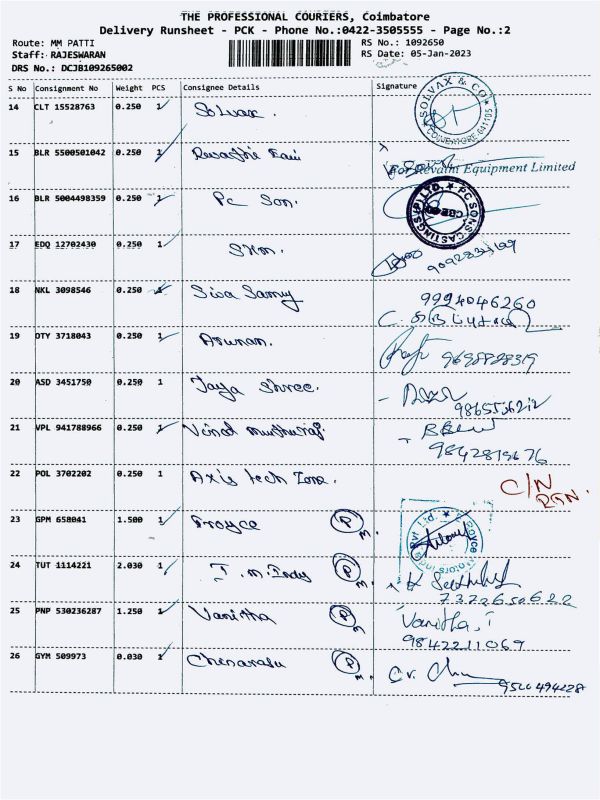 THE PROFESSIONAL COURIERS, Coimbatore
Delivery Runsheet - PCK - Phone No.:0422-3505555 - Page No.:2
Route: MM PATTI
Staff: RAJESWARAN
DRS No.: DCJB109265002
RS No.: 1092650
RS Date: 05-Jan-2023
S No Consignment No Weight PCS Consignee Details Signature
14 CLT 15528763 0.250 1 Solvax. SOLVAX & CO COIMBATORE 641105
15 BLR 5500501042 0.250 1 For Revathi Equipment Limited
16 BLR 5004498359 0.250 1 Pc Son. PC SONS CASTINGS (P) LTD.
17 EDQ 12702430 0.250 1
18 NKL 3098546 0.250 1 Siva Samy 9994046260
19 OTY 3718043 0.250 1 Arunan. 9698898319
20 ASD 3451750 0.250 1 Jaya Shree.
21 VPL 941788966 0.250 1 Vinod muthuraj 9842819676
22 POL 3702202 0.250 1 Axis tech Zone. C/N
23 GPM 658041 1.500 1 Froyce P M.
24 TUT 1114221 2.030 1 P M. 7322650622
25 PNP 530236287 1.250 1 Vanitha P M. Vanitha, T
9842211069
26 GYM 509973 0.030 1 Chenarasu P M.